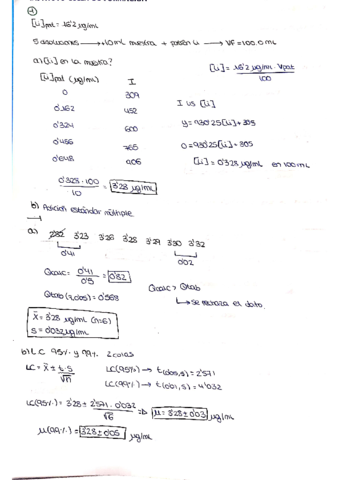 [Li]pat = 16'2 µg/mL
5 disoluciones → 10 mL muestra + patrón Li → VF = 100.0 mL
a) [Li] en la muestra?
[Li] = 16'2 µg/mL · Vpat / 100
[Li]pat (µg/mL) I
0 309
0'162 452
0'324 600
0'486 765
0'648 906
I vs [Li]
y = 930'25[Li] + 305
0 = 930'25[Li] + 305
[Li] = 0'328 µg/mL en 100 mL
0'328 · 100 / 10 = 3'28 µg/mL
b) Adición estándar múltiple
a) 2'82 3'23 3'26 3'28 3'29 3'30 3'32
0'41 0'02
Qcalc = 0'41 / 0'5 = 0'82
Qcalc > Qtab
Qtab = 0'568
→ se rechaza el dato
x̄ = 3'28 µg/mL (n=6)
s = 0'032 µg/mL
b) LC 95% y 99% 2 colas
LC = x̄ ± t·s / √n
LC(95%) → t(0'05,5) = 2'571
LC(99%) → t(0'01,5) = 4'032
LC(95%) = 3'28 ± 2'571 · 0'032 / √6 ⇒ µ = 3'28 ± 0'03 µg/mL
µ(99%) = 3'28 ± 0'05 µg/mL